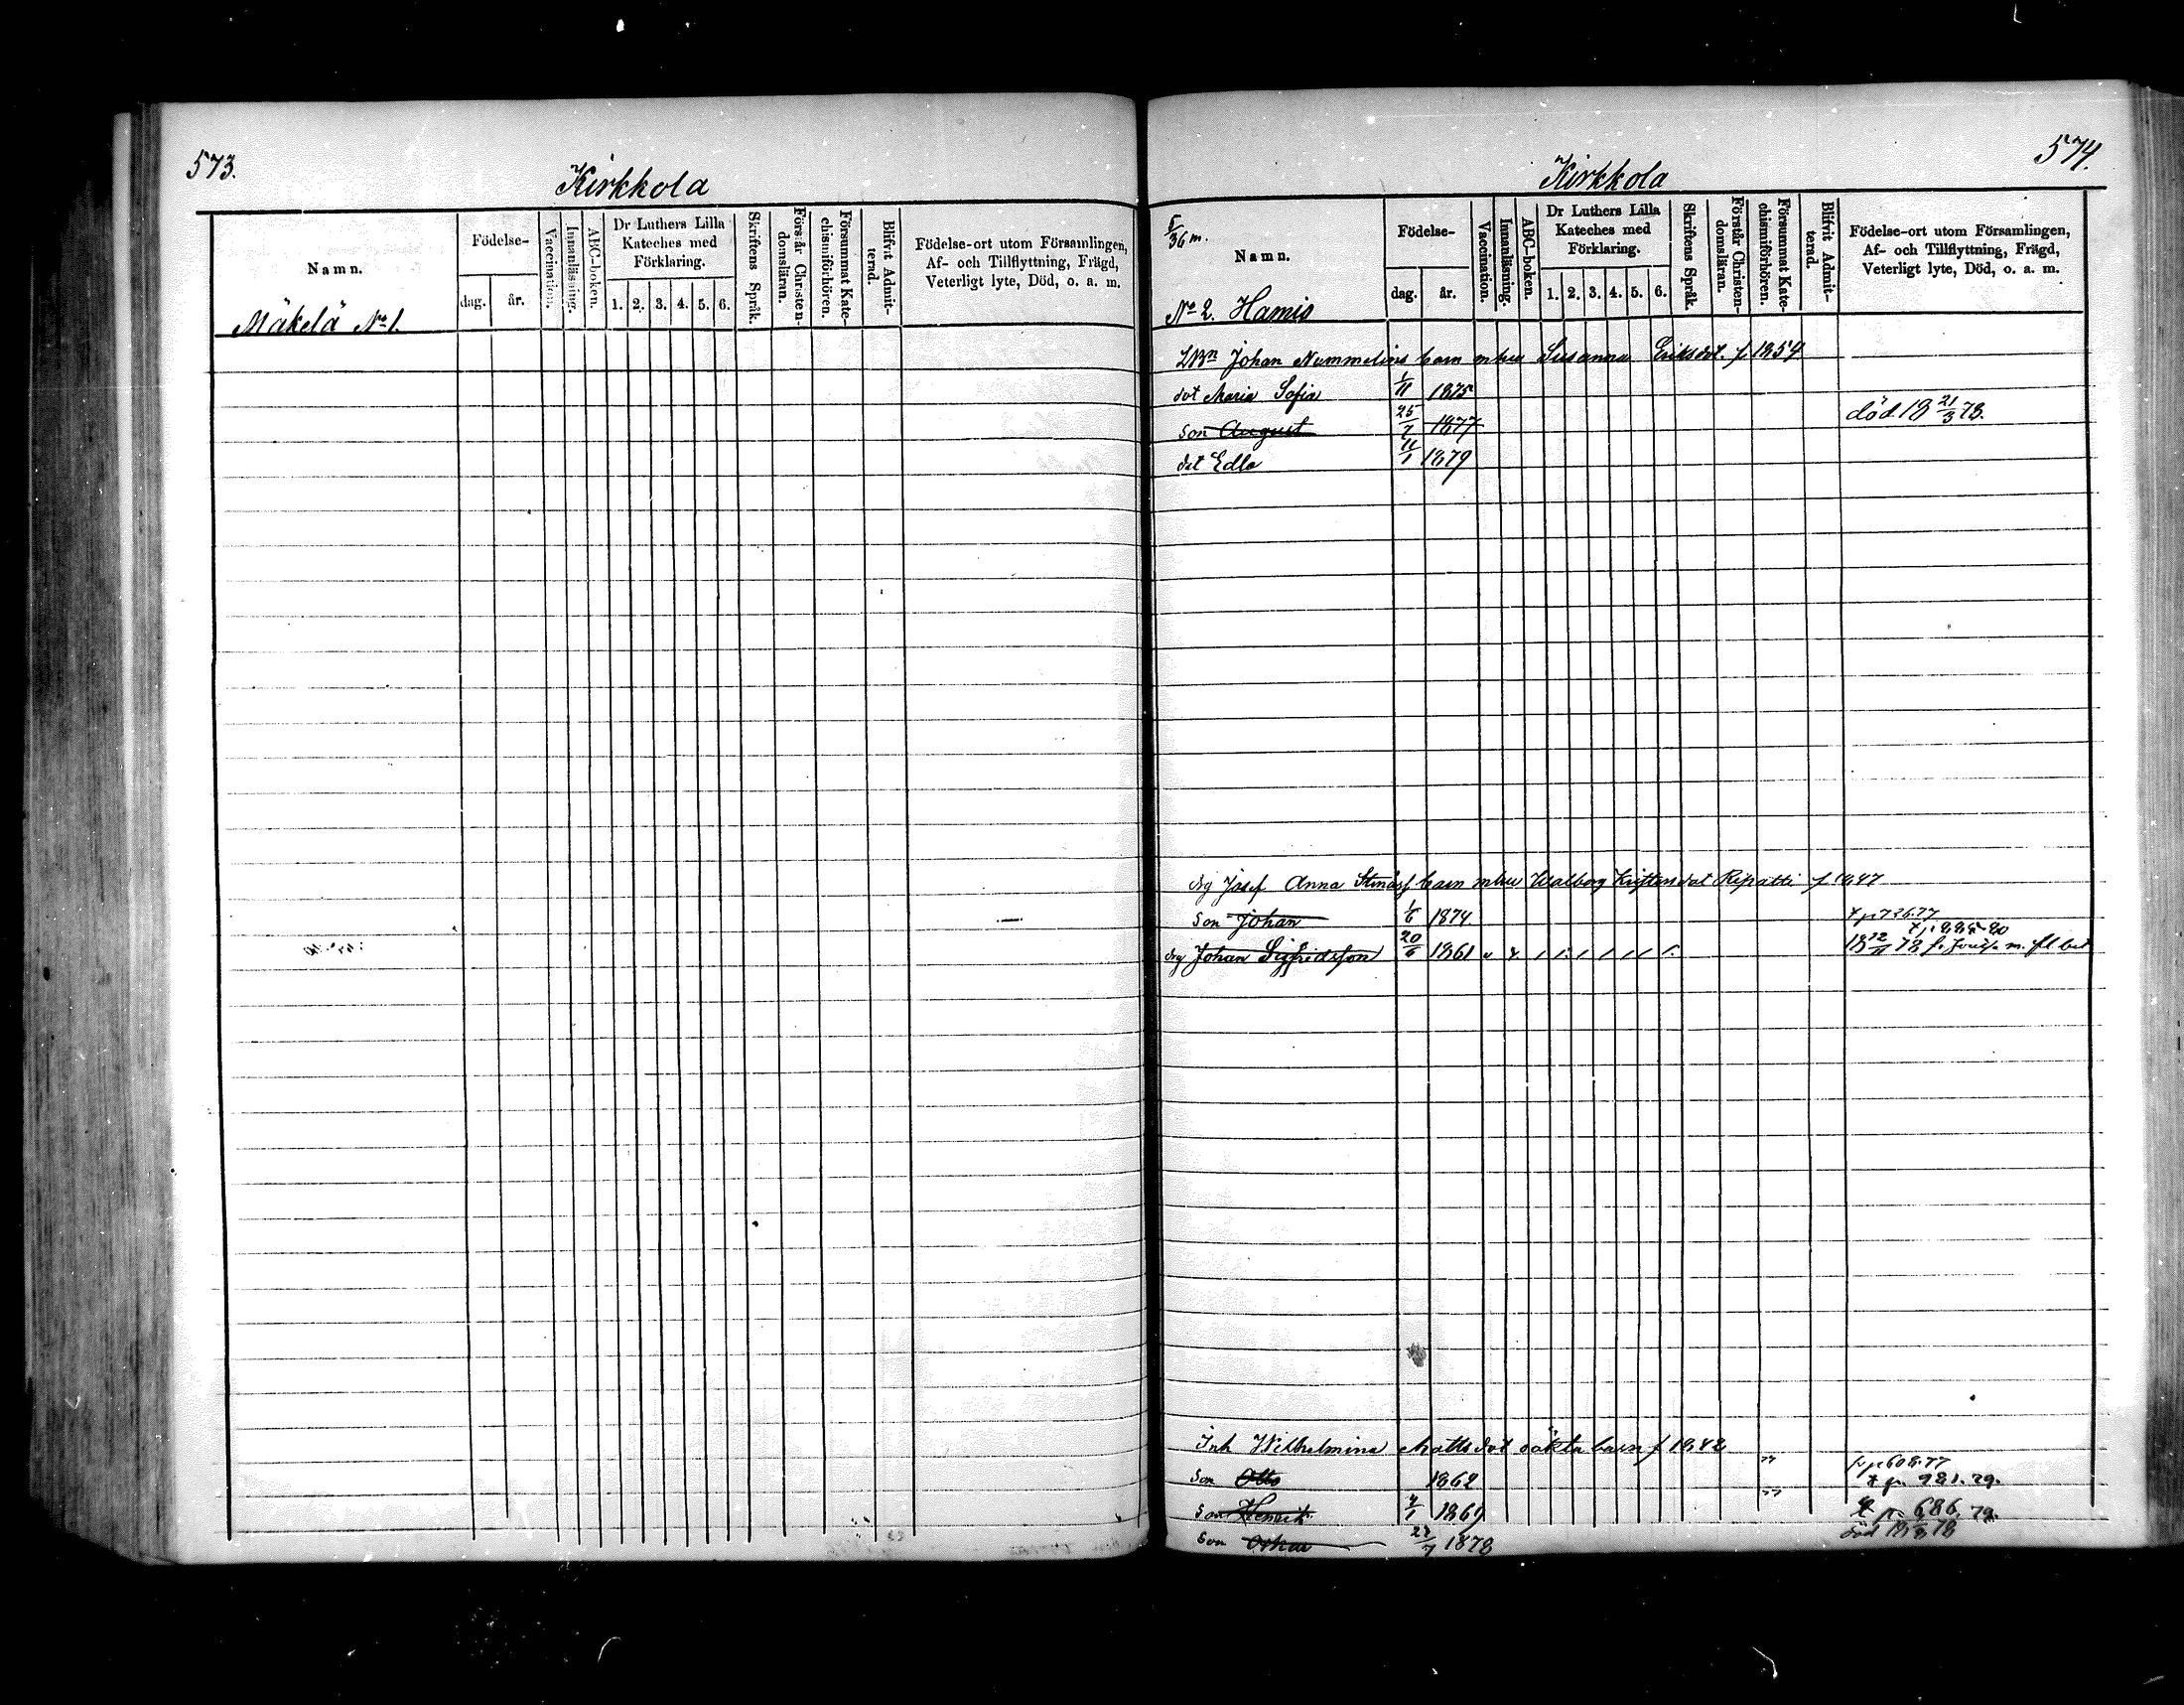 573.
Kirkkola
Namn.
Födelse-
dag.
år.
Vaccination.
Innanläsning.
ABC-boken.
Dr Luthers Lilla
Kateches med
Förklaring.
1. 2. 3. 4. 5. 6.
Skriftens Språk.
Förstår Christen-
domsläran.
Försummat Kate-
chismiförhören.
Blifvit Admit-
terad.
Födelse-ort utom Församlingen,
Af- och Tillflyttning, Frägd,
Veterligt lyte, Död, o. a. m.
Mäkelä No 1.
574.
Kirkkola
5/36 m.
Namn.
Födelse-
dag.
år.
Vaccination.
Innanläsning.
ABC-boken.
Dr Luthers Lilla
Kateches med
Förklaring.
1. 2. 3. 4. 5. 6.
Skriftens Språk.
Förstår Christen-
domsläran.
Försummat Kate-
chismiförhören.
Blifvit Admit-
terad.
Födelse-ort utom Församlingen,
Af- och Tillflyttning, Frägd,
Veterligt lyte, Död, o. a. m.
No 2. Hamio
Johan Nummelins barn m hu Susanna Eriksdot. f. 1854
dot Maria Sofia 1/11 1875
son August 25/7 1877 död 18 21/3 78.
dot Edla 11/1 1879
drg Josef Anna Stinas barn m hu Walborg Kristersdot Ripatti f 1847
son Johan 1/6 1874 p 736.77
drg Johan Sigfridsson 20/6 1861
Inh Wilhelmina Mattsdot oäkta barn f 1842
son Otto 1862 p 608.77
p. 981.79.
son Henrik 1869 p. 686.79.
son Oskar 1878 död